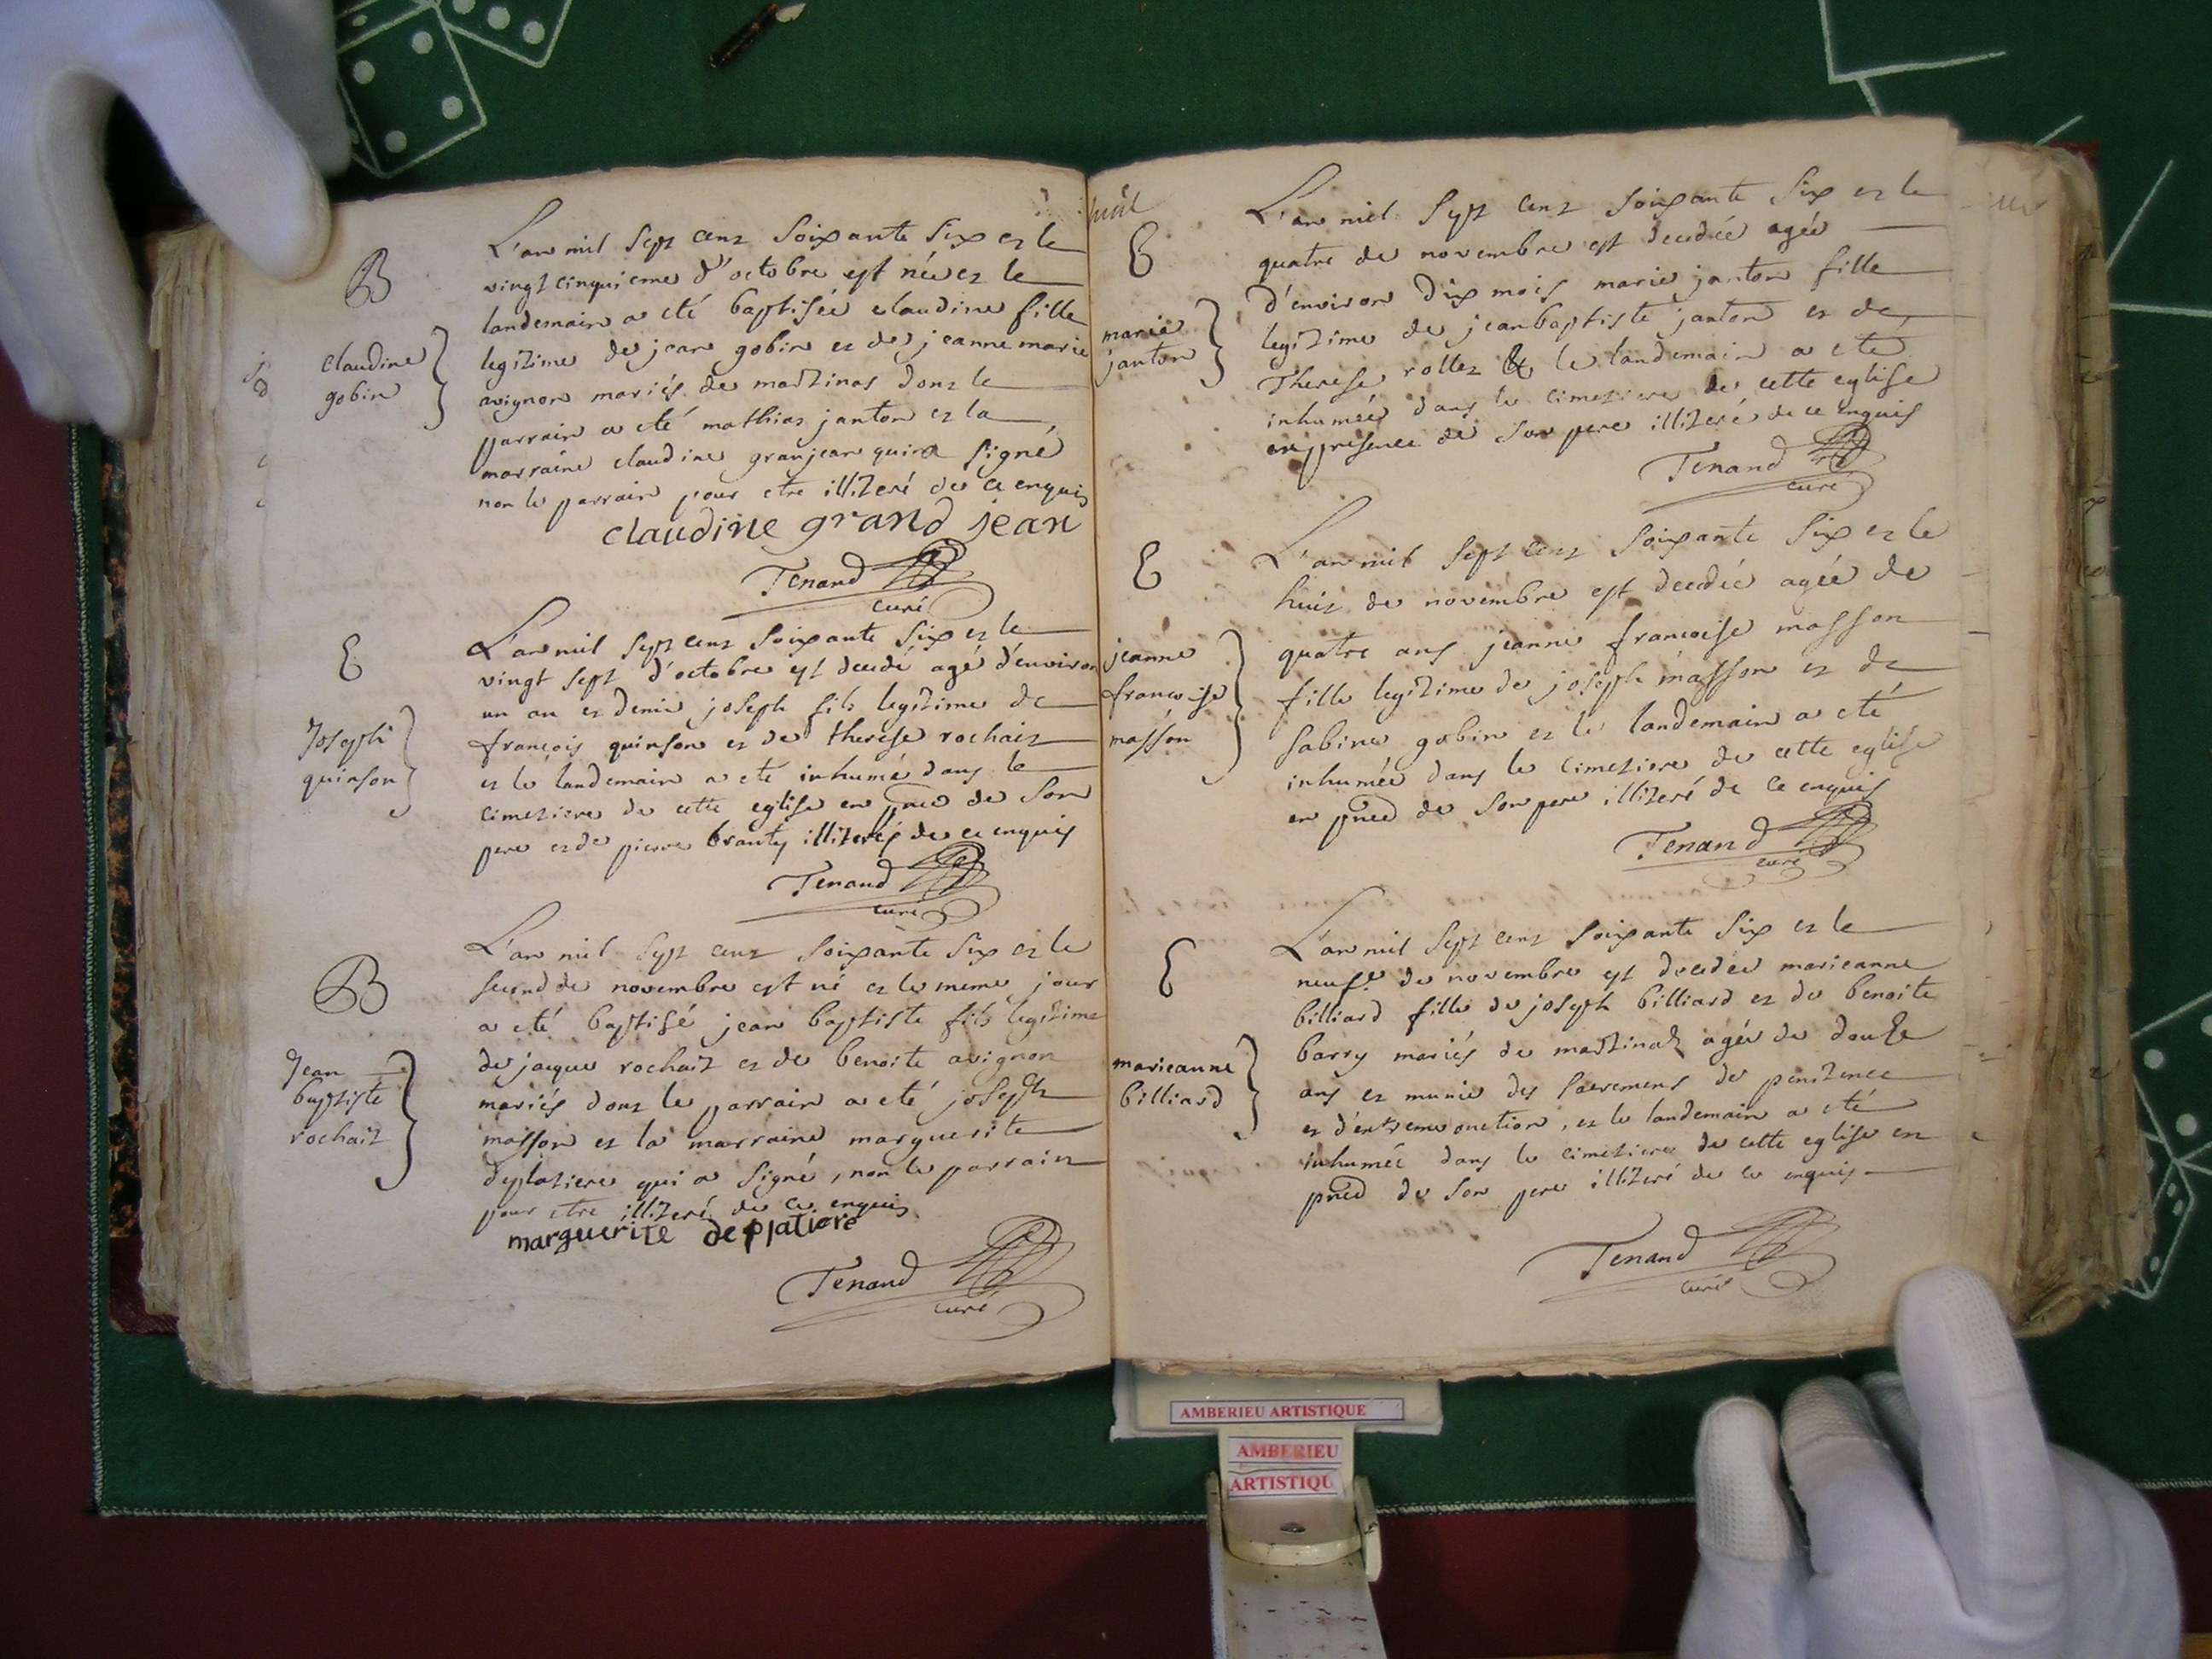 B
claudine
gobin
L'an mil sept cent soixante six et le
vingt cinquieme d'octobre est née et le
landemain a eté baptisée claudine fille
legitime de jean gobin et de jeanne marie
avignon mariés de martinas dont le
parrain a eté mathias janton et la
marraine claudine granjean qui a signé
non le parrain pour etre illiteré de ce enquis
claudine grand jean
Tenand
curé
E
Joseph
quinson
L'an mil sept cent soixante six et le
vingt sept d'octobre est decedé agé d'environ
un an et demi joseph fils legitime de
françois quinson et de therese rochait
et le landemain a eté inhumé dans le
cimetiere de cette eglise en pnce de son
pere et de pierre branty illiterés de ce enquis
Tenand
curé
B
Jean
baptiste
rochait
L'an mil sept cent soixante six et le
second de novembre est né et le meme jour
a eté baptisé jean baptiste fils legitime
de jacque rochait et de benoite avignon
mariés dont le parrain a eté joseph
masson et la marraine marguerite
deplatiere qui a signé, non le parrain
pour etre illiteré de ce enquis
marguerite deplatiere
Tenand
curé
huit
E
marie
janton
L'an mil sept cent soixante six et le
quatre de novembre est decedée agée
d'environ dix mois marie janton fille
legitime de jean baptiste janton et de
Therese rollet & le landemain a eté
inhumée dans le cimetiere de cette eglise
en presence de son pere illiteré de ce enquis
Tenand
curé
E
jeanne
francoise
masson
L'an mil sept cent soixante six et le
huit de novembre est decedée agée de
quatre ans jeanne francoise masson
fille legitime de joseph masson et de
sabine gobin et le landemain a eté
inhumée dans le cimetiere de cette eglise
en pnce de son pere illiteré de ce enquis
Tenand
curé
E
marieanne
billiard
L'an mil sept cent soixante six et le
neufe de novembre est decedée marieanne
billiard fille de joseph billiard et de benoite
barry mariés de martinas agée de douze
ans et munie des sacremens de penitence
et d'extreme onction, et le landemain a eté
inhumée dans le cimetiere de cette eglise en
pnce de son pere illiteré de ce enquis
Tenand
curé
AMBERIEU ARTISTIQUE
AMBERIEU
ARTISTIQU